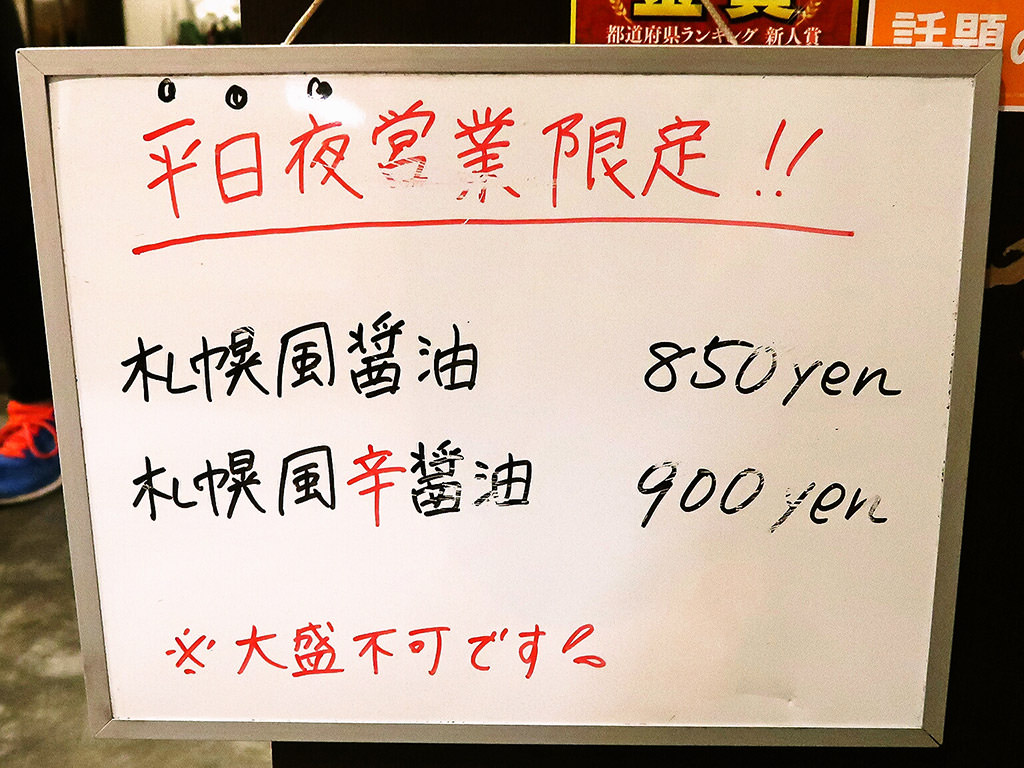 金賞
都道府県ランキング 新人賞
話題の
平日夜営業限定!!
札幌風醤油 850yen
札幌風辛醤油 900yen
※大盛不可です